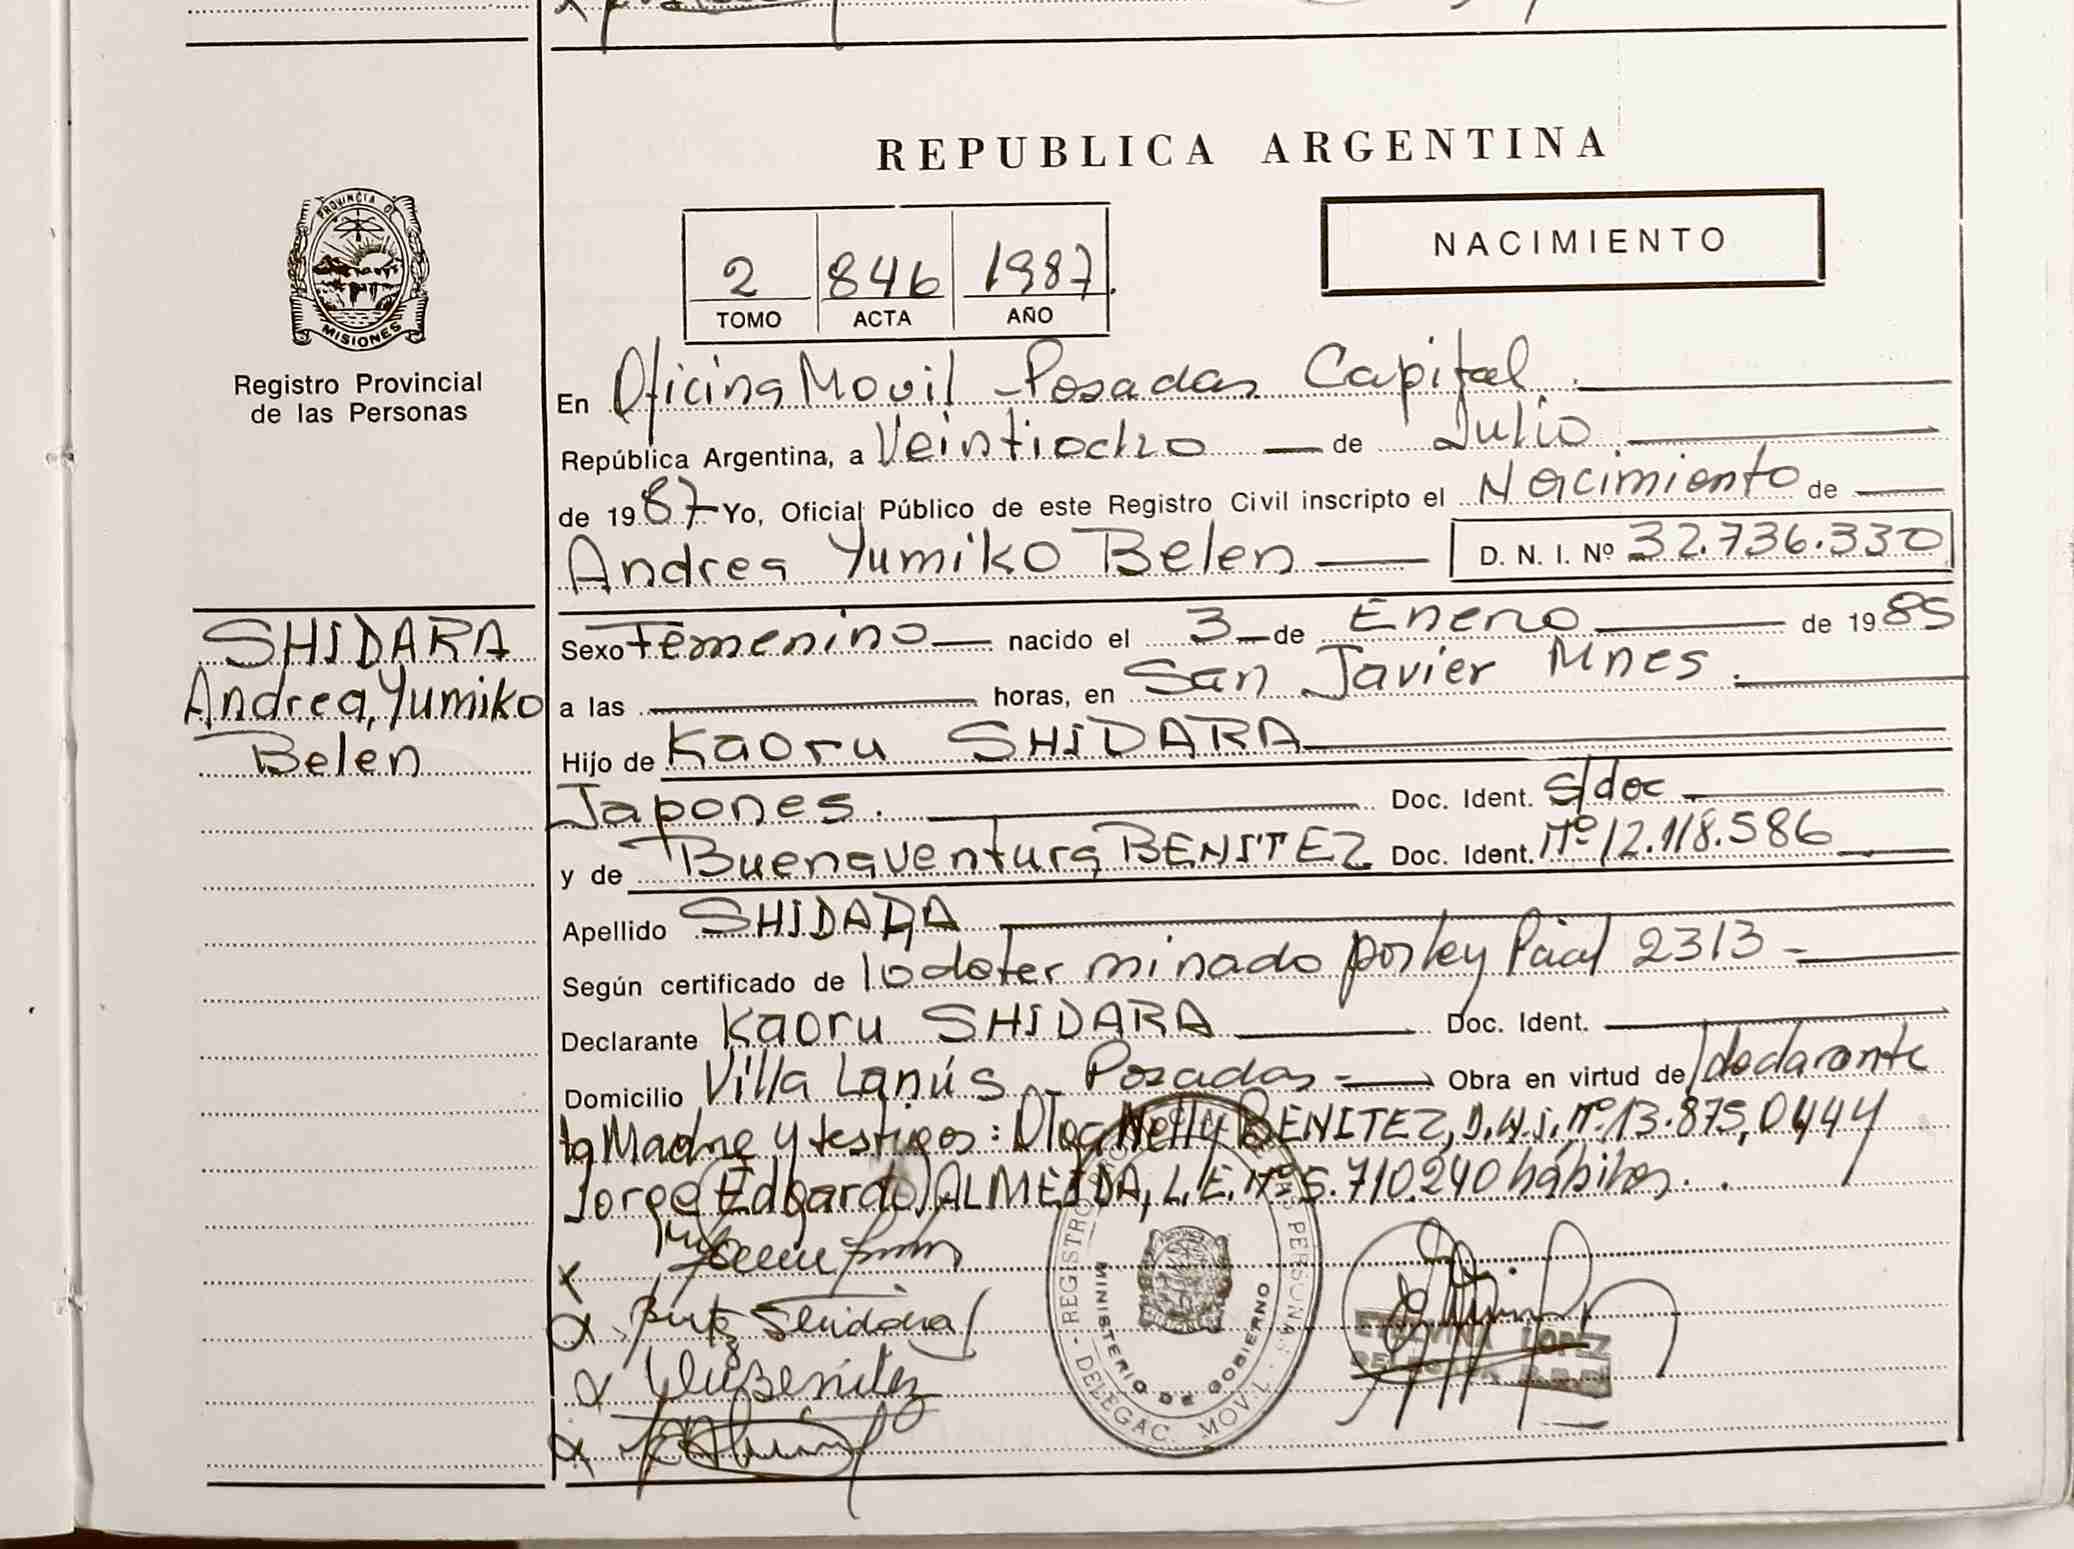 REPUBLICA ARGENTINA
PROVINCIA DE
MISIONES
Registro Provincial
de las Personas
NACIMIENTO
2 846 1987.
TOMO ACTA AÑO
En Oficina Movil - Posadas Capital.
República Argentina, a Veintiocho de Julio
de 1987 Yo, Oficial Público de este Registro Civil inscripto el Nacimiento de
Andrea Yumiko Belen D. N. I. Nº 32.736.330
SHIDARA
Andrea, Yumiko
Belen
Sexo Femenino nacido el 3 de Enero de 1985
a las horas, en San Javier Mnes.
Hijo de Kaoru SHIDARA
Japones. Doc. Ident. s/doc
y de Buenaventura BENITEZ Doc. Ident. Nº 12.118.586
Apellido SHIDARA
Según certificado de lo determinado por ley Pcial 2313 -
Declarante Kaoru SHIDARA Doc. Ident.
Domicilio Villa Lanús - Posadas - Obra en virtud de declarante
la Madre y testigos: Olga Nelly BENITEZ, D.N.I. Nº 13.875,044 y
Jorge Edgardo ALMEIDA, L.E. Nº 5.710.240 hábiles.
REGISTRO PERSONAS
MINISTERIO DE GOBIERNO
DELEGAC. MOVIL
ETELVINA LOPEZ